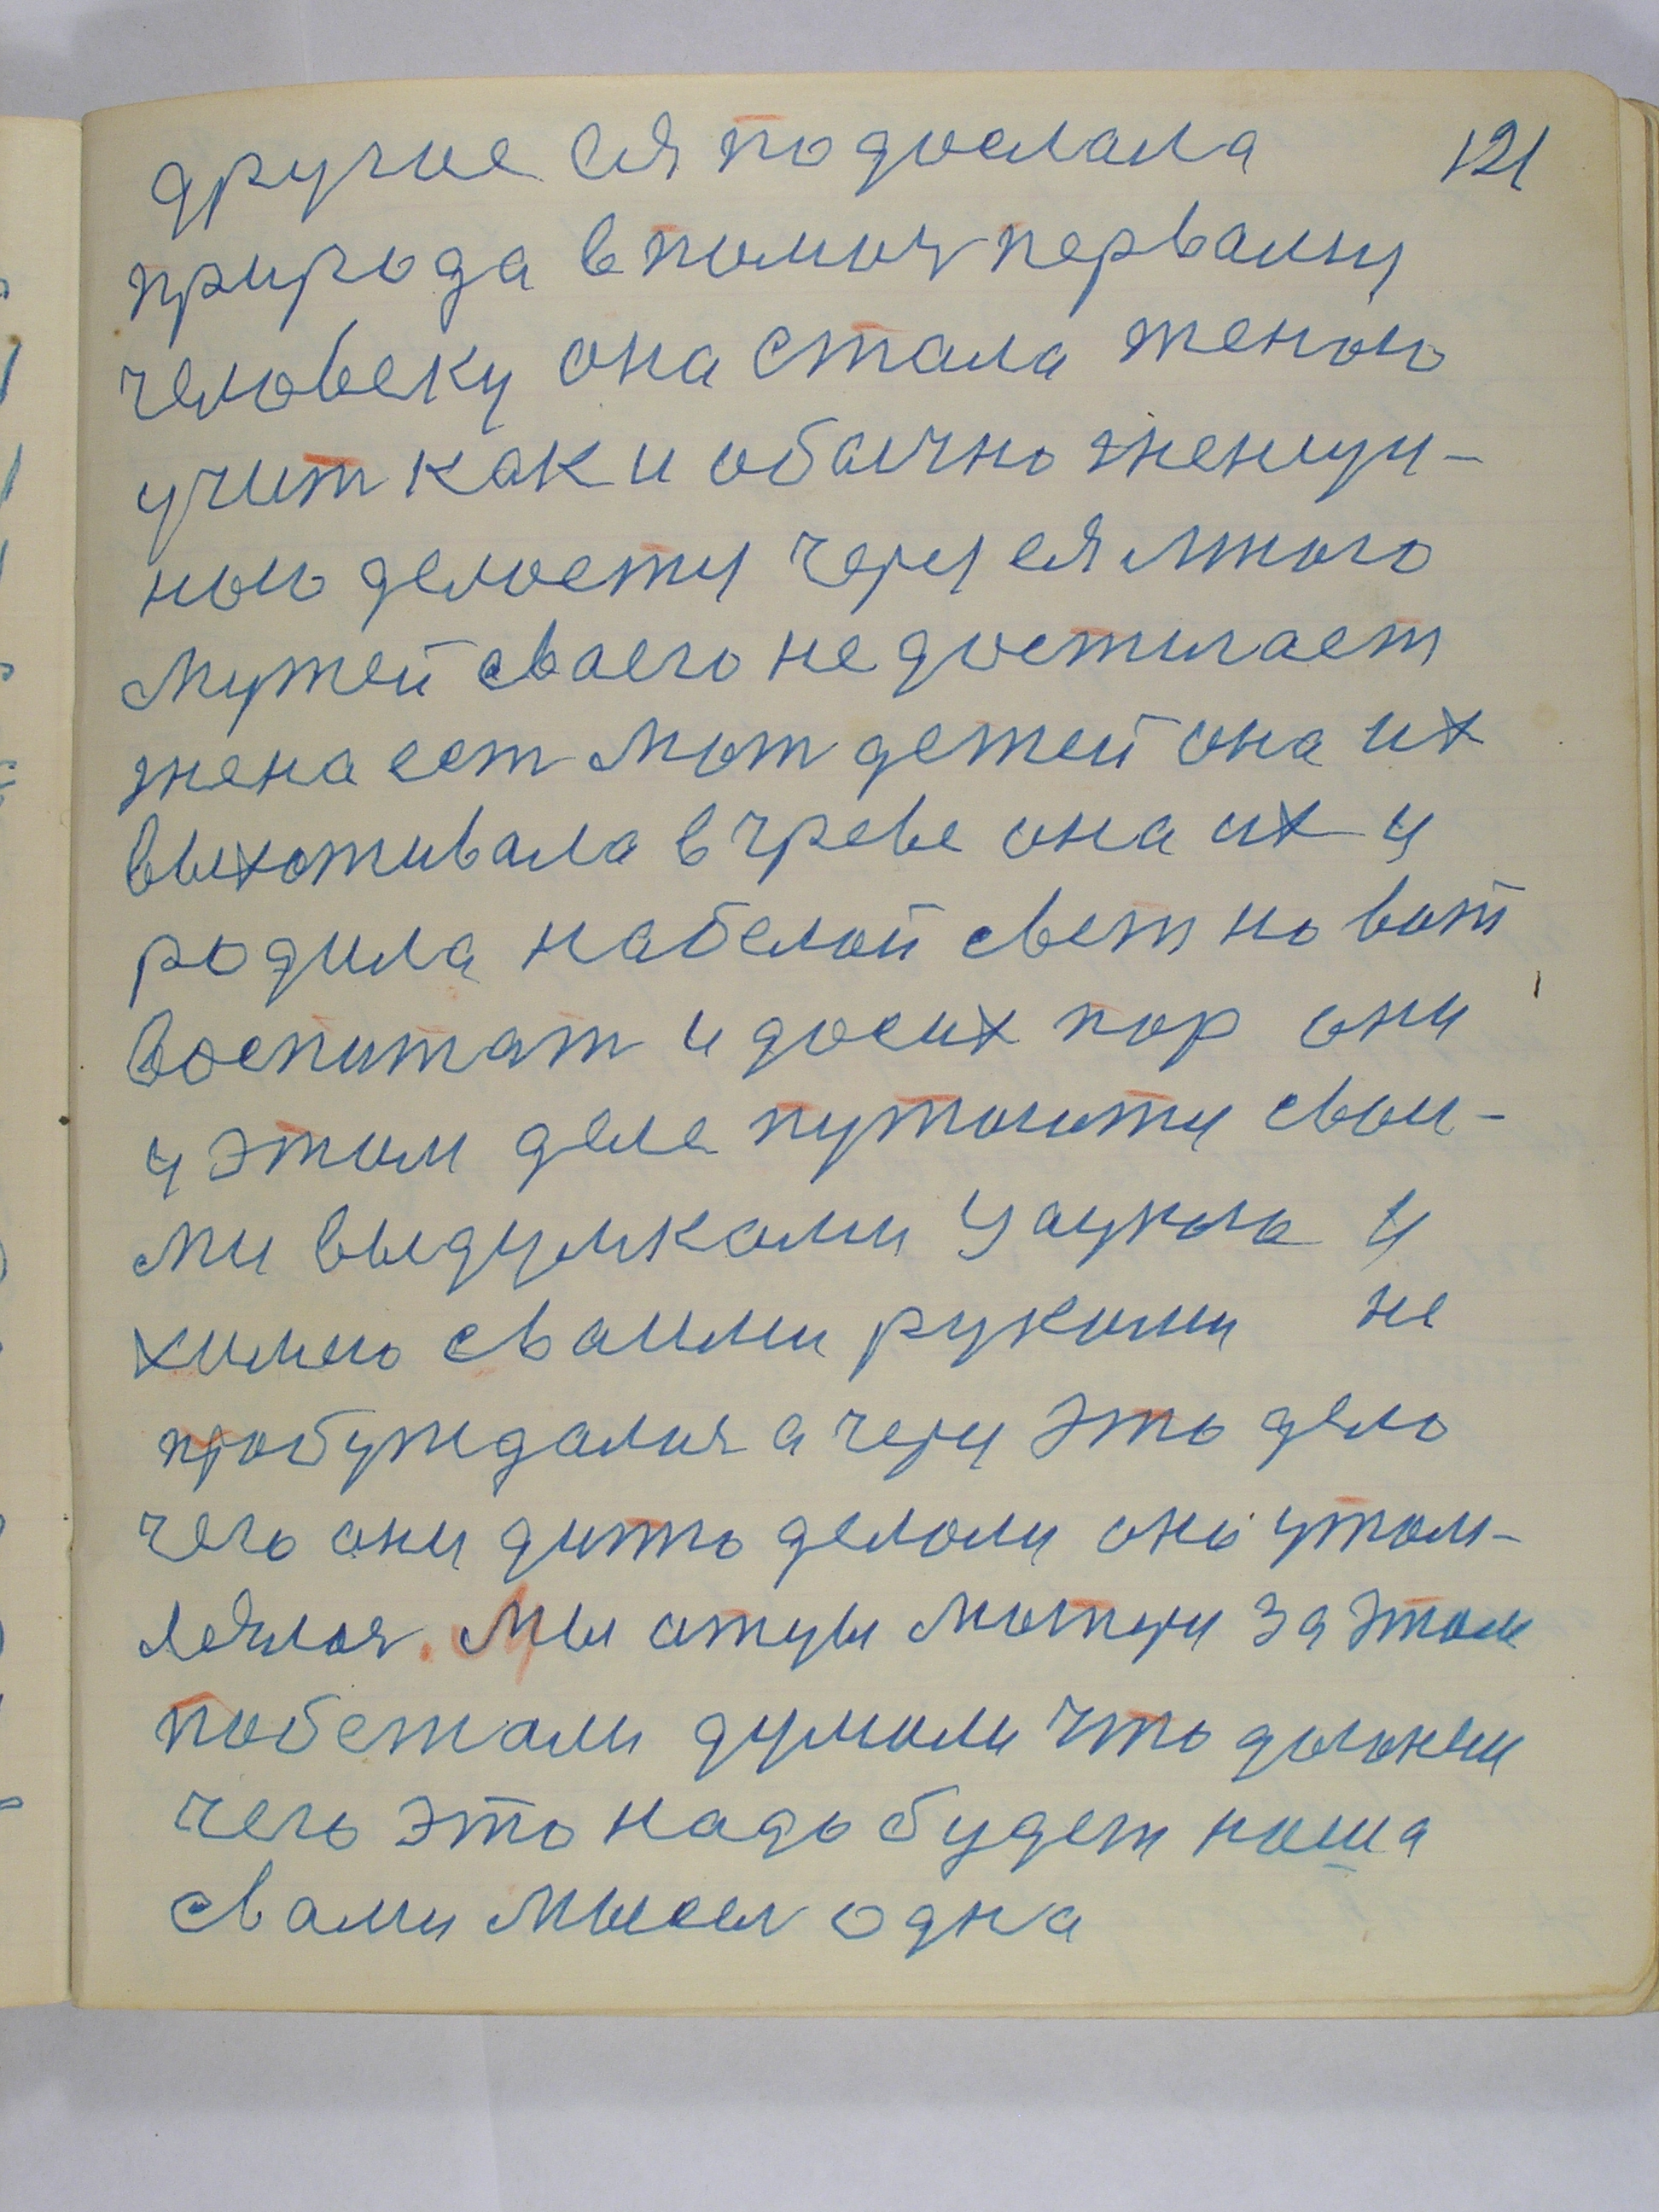 другие ея подослала 121
природа в помоч перваму
человеку она стала женою
учит как и обычно женщи-
ною делоеты через ея много
мужей сваего не достигает
жена ест мат детей она их
выхаживала в чреве она их и
родила на белай свет но вот
воспитат и досих пор они
у этом деле путоитц свои-
ми выдумками наукой и
химею сваими рукоми не
пробуждалися а через это дело
чего они дито делоли оно утом-
лялося. Мы атцы матери за этом
побежали думоли что должны
чего это надо будет наша
свами мысел одна